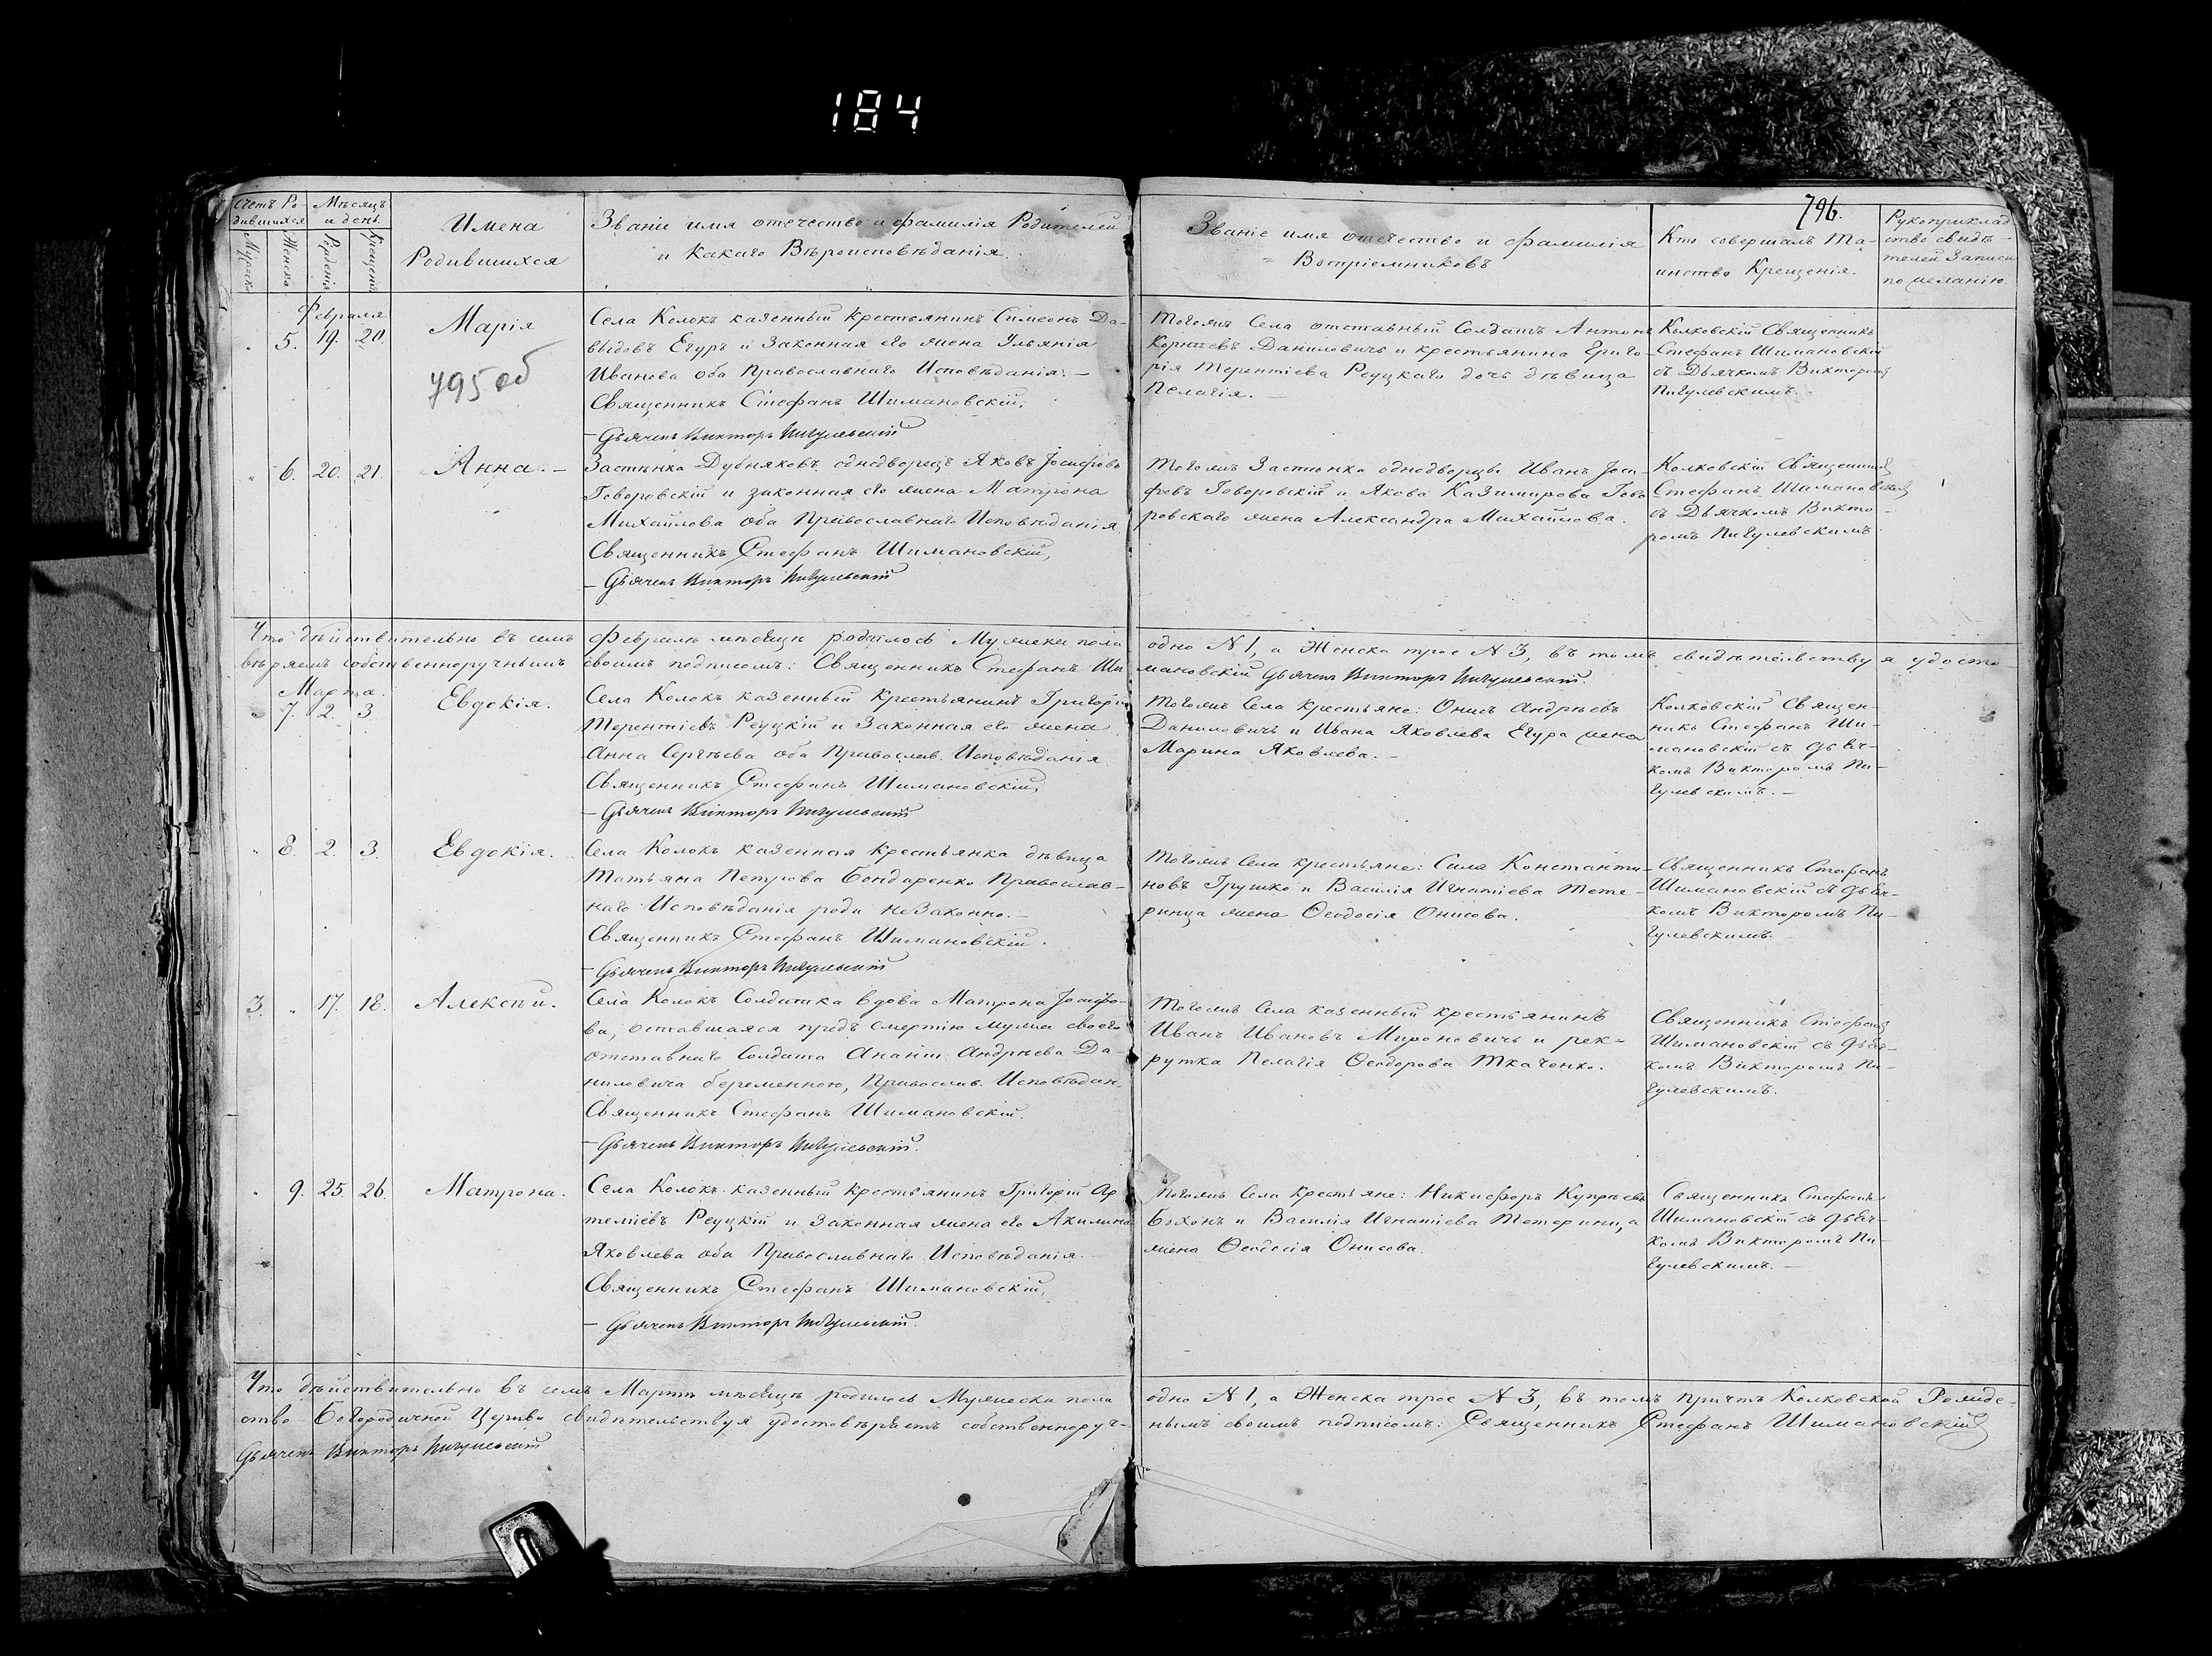 184
796.
Счетъ Ро
дившихся
Мѣсяцъ
и день
Мужеска
Женска
Рожденія
Крещенія
Имена
Родившихся
Званіе имя отечество и фамилія Родителей
и Какаго Вѣроисповѣданія.
Званіе имя отечество и фамилія
Воспріемниковъ
Кто совершалъ Та-
инство Крещенія.
Рукоприклад
ство свидѣ-
телей Записи
по желанію
Февраля
5. 19. 20.
Марія
795 об
Села Колокъ казенный крестьянинъ Симеонъ Да-
выдовъ Егуръ и Законная его жена Ульянія
Иванова оба Православнаго Исповѣданія. —
Священникъ Стефанъ Шимановскій,
— Дьячекъ Викторъ Пигулевскій
Тогожъ Села отставный Солдатъ Антонъ
Корнѣевъ Даниловичъ и крестьянина Григо-
рія Терентіева Реуцкаго дочь дѣвица
Пелагія. —
Колковскій Священникъ
Стефанъ Шимановскій
съ Дьячкомъ Викторомъ
Пигулевскимъ.
6. 20. 21.
Анна. —
Застѣнка Дубняковъ однодворецъ Яковъ Іосифовъ
Говоровскій и законная его жена Матрона
Михайлова оба Православнаго Исповѣданія
Священникъ Стефанъ Шимановскій,
— Дьячекъ Викторъ Пигулевскій
Тогожъ Застѣнка однодворцы Иванъ Іоси-
фовъ Говоровскій и Якова Казимирова Гово-
ровскаго жена Александра Михайлова.
Колковскій Священникъ
Стефанъ Шимановскій
съ Дьячкомъ Викто-
ромъ Пигулевскимъ
Что дѣйствительно въ семъ Февралѣ мѣсяцѣ родилось Мужеска пола одно N 1, а Женска трое N 3, въ томъ свидѣтельствуя удосто-
вѣряемъ собственноручнымъ своимъ подписомъ: Священникъ Стефанъ Шимановскій Дьячекъ Викторъ Пигулевскій.
Марта.
7. 2. 3.
Евдокія.
Села Колокъ казенный крестьянинъ Григорій
Терентіевъ Реуцкій и Законная его жена
Анна Сергѣева оба Православ. Исповѣданія
Священникъ Стефанъ Шимановскій,
— Дьячекъ Викторъ Пигулевскій
Тогожъ Села крестьяне: Онисъ Андрѣевъ
Даниловичъ и Ивана Яковлева Егура жена
Марина Яковлева. —
Колковскій Священ-
никъ Стефанъ Ши-
мановскій съ дьяч-
комъ Викторомъ Пи-
гулевскимъ. —
8. 2. 3.
Евдокія.
Села Колокъ казенная крестьянка дѣвица
Татьяна Петрова Бондаренко Православ-
наго Исповѣданія роди неЗаконно. —
Священникъ Стефанъ Шимановскій.
— Дьячекъ Викторъ Пигулевскій
Тогожъ Села крестьяне: Сила Константи-
новъ Грушко и Василія Игнатіева Тете-
ринца жена Ѳеодосія Онисова.
Священникъ Стефанъ
Шимановскій съ дьяч-
комъ Викторомъ Пи-
гулевскимъ.
3. 17. 18.
Алексѣй.
Села Колокъ Солдатка вдова Матрона Іосифо-
ва, оставшаяся предъ смертію мужа своего
отставнаго Солдата Ананіи Андрѣева Да-
ниловича беременною, Православ. Исповѣдан.
Священникъ Стефанъ Шимановскій.
— Дьячекъ Викторъ Пигулевскій.
Тогожъ Села казенный крестьянинъ
Иванъ Ивановъ Мироновичъ и рек-
рутка Пелагія Ѳеодорова Ткаченко.
Священникъ Стефанъ
Шимановскій съ дьяч-
комъ Викторомъ Пи-
гулевскимъ.
9. 25. 26.
Матрона.
Села Колокъ казенный крестьянинъ Григорій Ар-
теміевъ Реуцкій и Законная жена его Акилина
Яковлева оба Православнаго Исповѣданія.
Священникъ Стефанъ Шимановскій,
— Дьячекъ Викторъ Пигулевскій.
Тогожъ Села крестьяне: Никифоръ Купрѣевъ
Бохонъ и Василія Игнатіева Тетеринца
жена Ѳеодосія Онисова.
Священникъ Стефанъ
Шимановскій съ дьяч-
комъ Викторомъ Пи-
гулевскимъ. —
Что дѣйствительно въ семъ Мартѣ мѣсяцѣ родилось Мужеска пола одно N 1, а Женска трое N 3, въ томъ причтъ Колковской Рожде-
ство Богородичной Церкви свидѣтельствуя удостовѣряетъ собственноруч-нымъ своимъ подписомъ: Священникъ Стефанъ Шимановскій
Дьячекъ Викторъ Пигулевскій